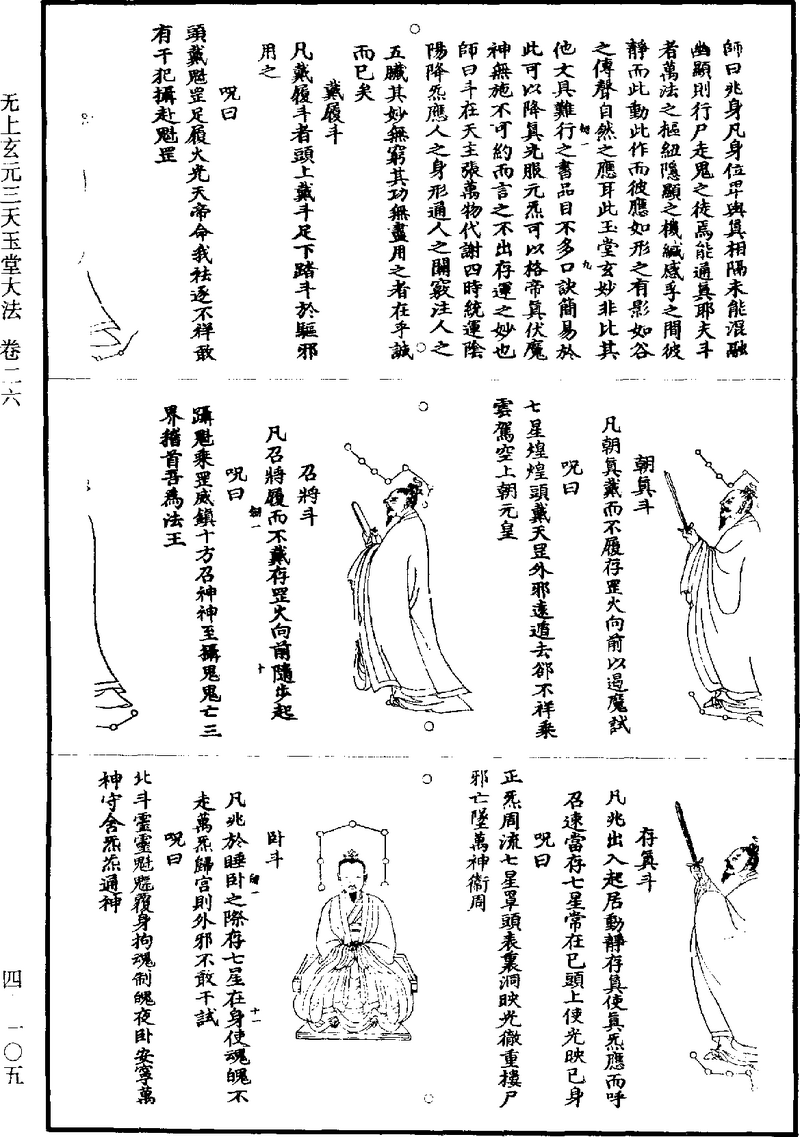 師曰兆身凡身位卑與真相隔未能混融
幽顯則行尸走鬼之徒焉能通真耶夫斗
者萬法之樞紐隱顯之機緘感孚之間彼
靜而此動此作而彼應如形之有影如谷
之傳聲自然之應耳此玉堂玄妙非比其
他文具難行之書品目不多口訣簡易於
此可以降真光服元炁可以格帝真伏魔
神無施不可約而言之不出存運之妙也
師曰斗在天主張萬物代謝四時統運陰
陽降炁應人之身形通人之關竅注人之
五臟其妙無窮其功無盡用之者在乎誠
而已矣
戴履斗
凡戴履斗者頭上戴斗足下踏斗於驅邪
用之
呪曰
頭戴魁罡足履火光天帝命我祛逐不祥敢
有干犯攝赴魁罡
朝真斗
凡朝真戴而不履存罡火向前以遏魔試
呪曰
七星煌煌頭戴天罡外邪遠遁去郤不祥乘
雲駕空上朝元皇
召將斗
凡召將履而不戴存罡火向前隨步起
呪曰
躡魁乘罡威鎮十方召神神至攝鬼鬼亡三
界稽首吾為法王
存真斗
凡兆出入起居動靜存真使真炁應而呼
召速當存七星常在已頭上使光映已身
呪曰
正炁周流七星罩頭表裏洞映光徹重樓尸
邪亡墜萬神衞周
卧斗
凡兆於睡卧之際存七星在身使魂魄不
走萬炁歸宮則外邪不敢干試
呪曰
北斗靈靈魁魁覆身拘魂制魄夜卧安寧萬
神守舍炁炁通神
无上玄元三天玉堂大法 卷二六
四 一〇五